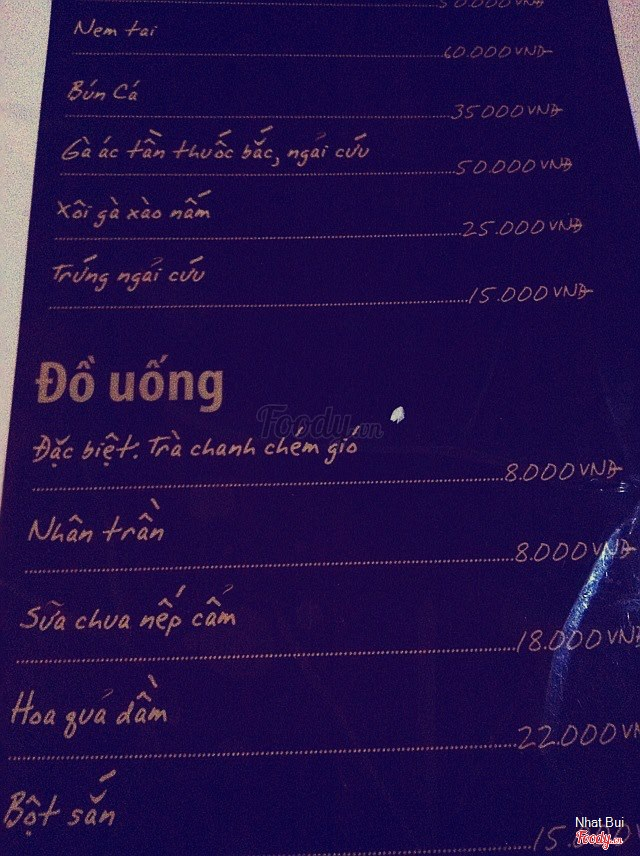 50.000 VNĐ
Nem tai
60.000 VNĐ
Bún Cá
35.000 VNĐ
Gà ác tần thuốc bắc, ngải cứu
50.000 VNĐ
Xôi gà xào nấm
25.000 VNĐ
Trứng ngải cứu
15.000 VNĐ
Đồ uống
Foody.vn
Đặc biệt. Trà chanh chém gió
8.000 VNĐ
Nhân trần
8.000 VNĐ
Sữa chua nếp cẩm
18.000 VNĐ
Hoa quả dầm
22.000 VN
Bột sắn
15.000 V
Nhat Bui
Foody.vn